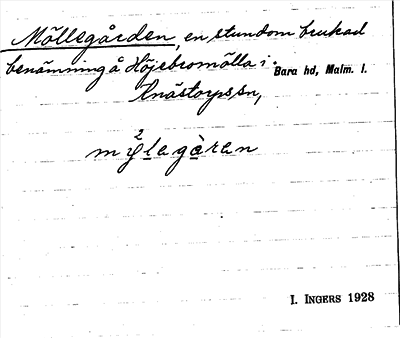 Möllegården, en stundom brukad
benämning å Höjebromölla i Bara hd, Malm. l.
Knästorps sn,
I. INGERS 1928